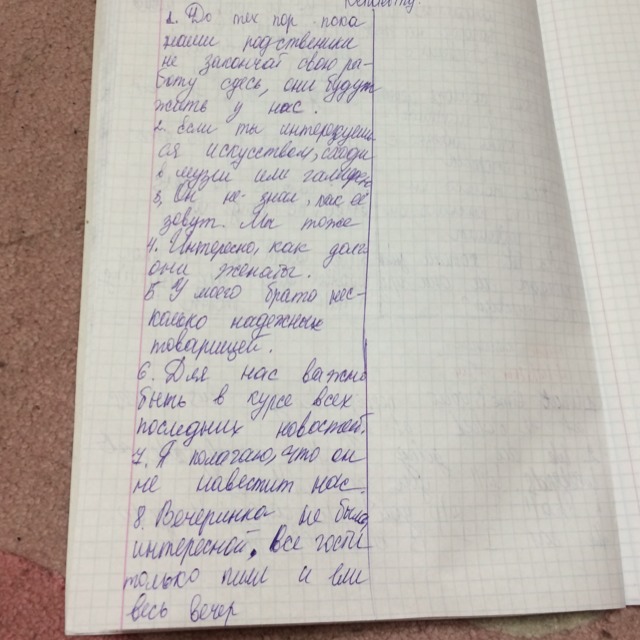 1. До тех пор пока
наши родственики
не закончат свою ра-
боту здесь, они будут
жить у нас.
2. Если ты интересуеш
ся искусством, сходи
в музей или галерею
3. Он не знал, как её
зовут. Мы тоже
4. Интересно, как долго
они женаты.
5. У моего брата нес-
колько надежных
товарищей.
6. Для нас важно
быть в курсе всех
последних новостей.
7. Я полагаю, что он
не навестит нас.
8. Вечеринка не была
интересной. Все гости
только пили и ели
весь вечер